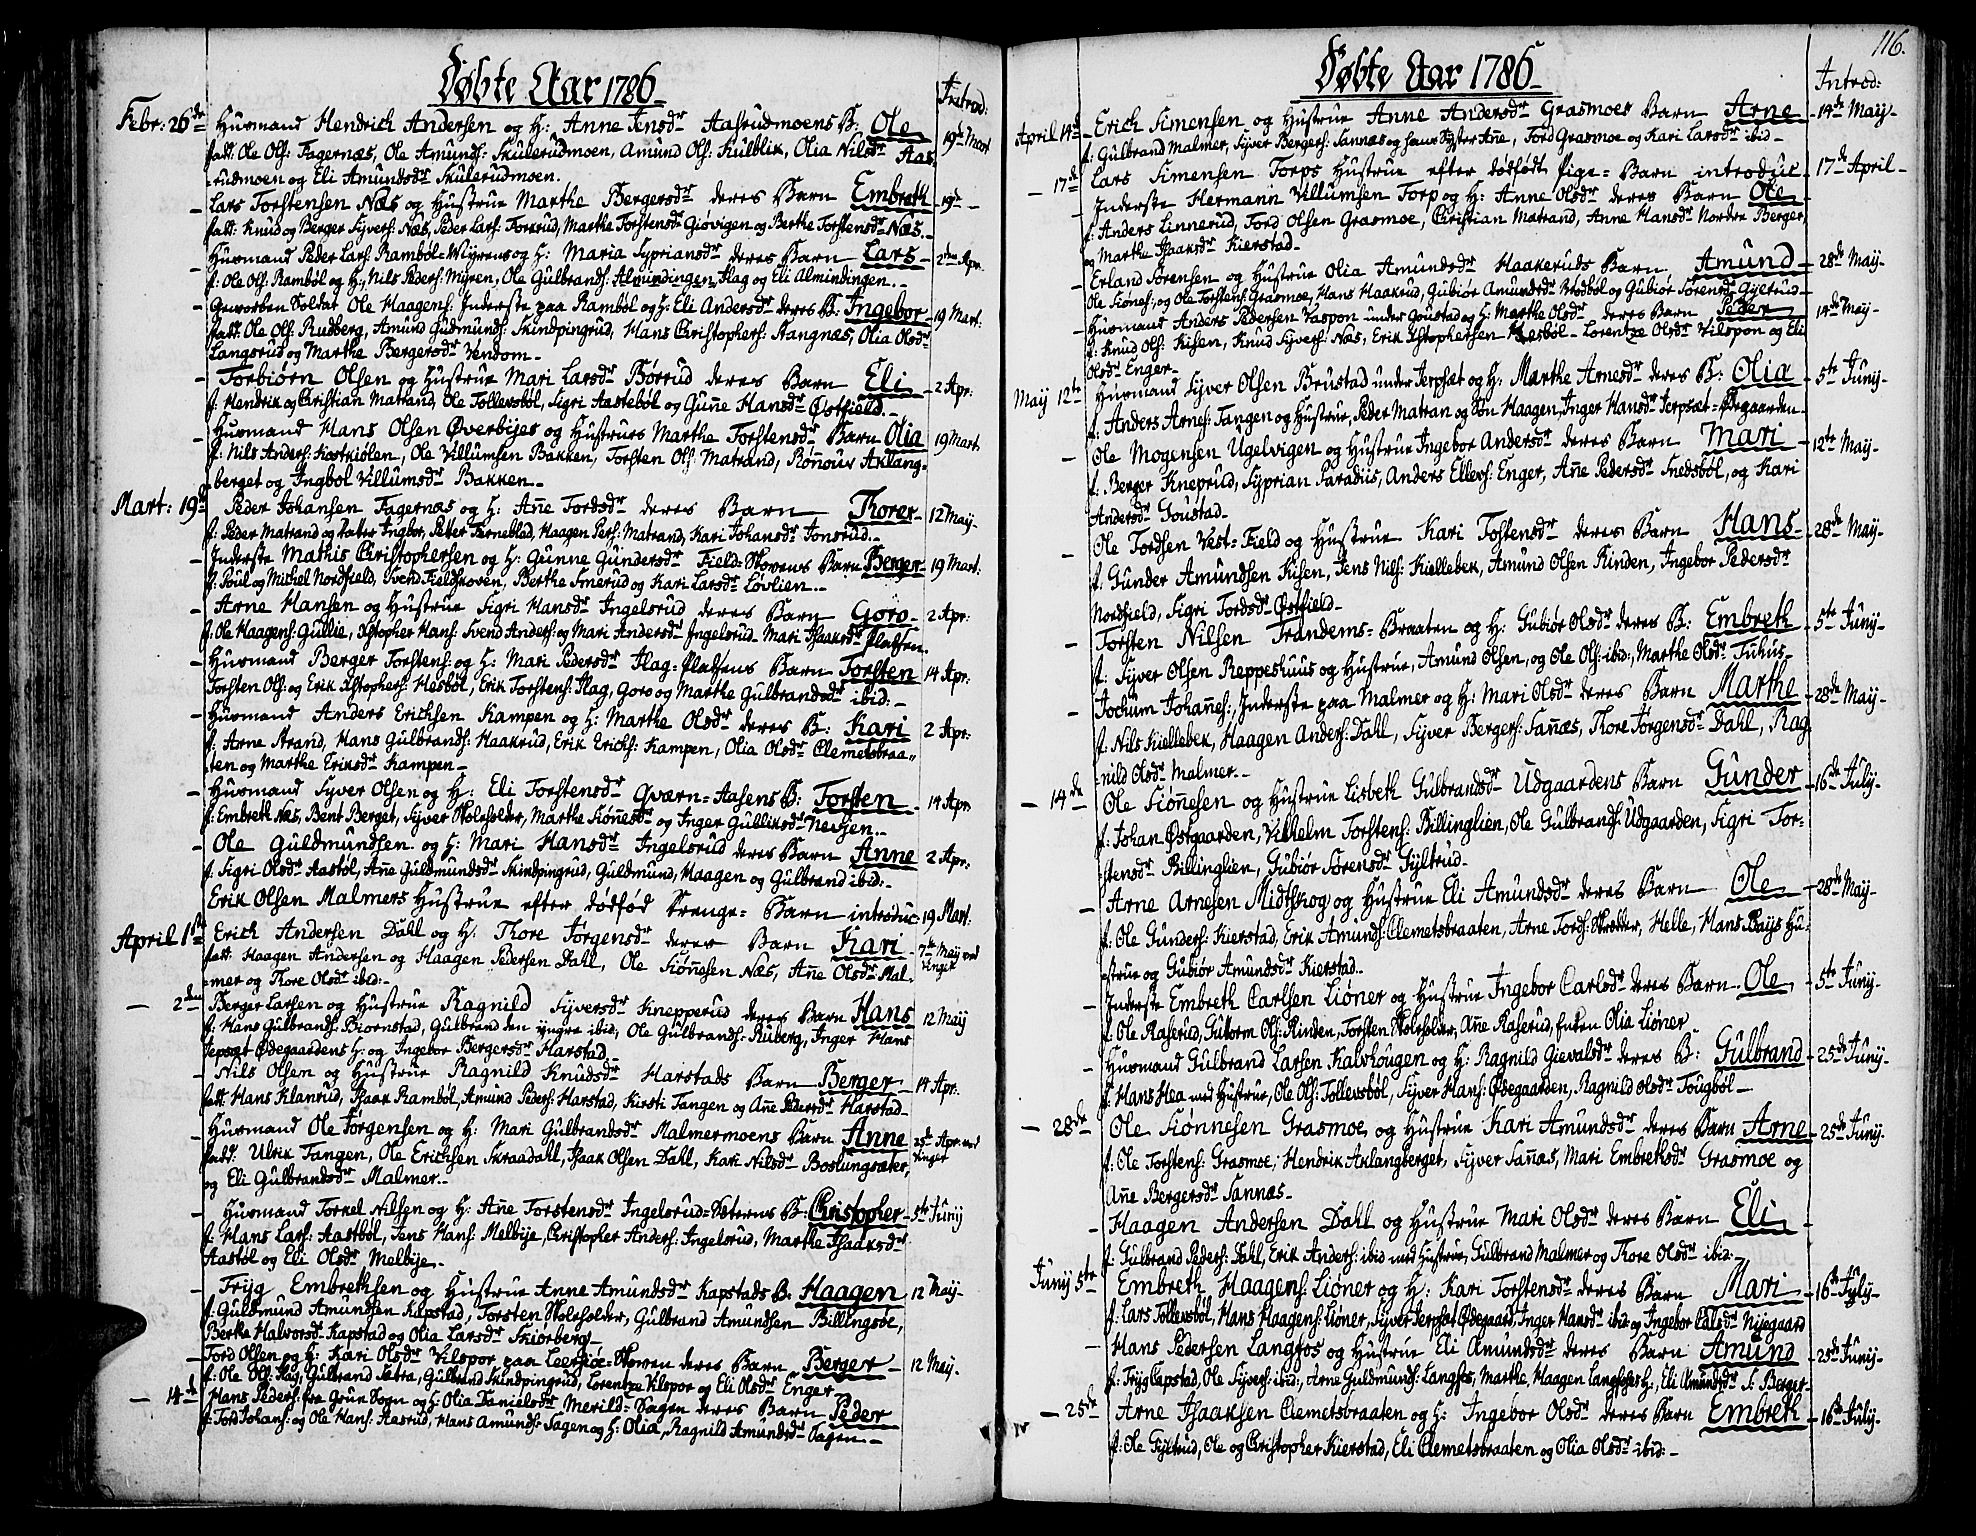 Døbte Aar 1786
Introd:
Febr: 26de Huusmand Hendrich Andersen og H: Anne Jensdr Aasrudmoens B: Ole 19de Mart
fadd: Ole Ols: Fagernæs, Ole Amunds: Skulerudmoen, Amund Ols: Kulblik, Olia Nilsdr Aas
rudmoen og Eli Amundsdr Skulerudmoen.
Lars Torstensen Næs og Hustrue Marthe Bergersdr deres Barn Embreth 19de
fadd: Knud og Berger Syvers: Næs, Peder Lars: Forrud, Marthe Torstensdr Giøvigen og Berthe Torstensdr Næs.
Husmand Peder Lars: Rambøl-Myrens og H: Maria Sypriansdr deres Barn Lars 2den Apr.
f: Ole Ols: Rambøl og H:, Nils Peders: Myren, Ole Gulbrands: Almindingen, Flag og Eli Almindingen.
Gevorben Soldat Ole Haagens: Inderste paa Rambøl og H: Eli Andersdr deres B: Ingebor 19 Mart:
fadd: Ole Ols: Rudberg, Amund Gudmunds: Skindpingrud, Hans Christophers: Stangnæs, Olia Olsdr
Langsrud og Marthe Bergersdr Vendom
Torbiørn Olsen og Hustrue Mari Larsdr Børrud deres Barn Eli 2 Apr.
f: Hendrik og Christian Matrand, Ole Tollevsbøl, Sigri Aastebøl og Gunne Hansdr Østfield.
Husmand Hans Olsen Øverbyes og Hustrues Marthe Torstensdr Barn Olia 19 Mart.
f: Nils Anders: Kostkiølen, Ole Villumsen Bakken, Torsten Ols: Matrand, Rønnouv Aklang
berget og Ingbol Villumsdr Bakken
Mart: 19de Peder Johansen Fagernæs og H: Anne Tordsdr deres Barn Thorer 12 May
f: Peder Matrand og Datter Ingbor, Petter Ferneblad, Haagen Pers: Matrand, Kari Johansdr Jonsrud.
Inderste Mathis Christophersen og H: Gunne Gundersdr Field-Skovens Barn Berger 19 Mart:
f: Poul og Mickel Nordfield, Svend Fieldskoven, Berthe Smerud og Kari Larsdr Løvlien.
Arne Hansen og Hustrue Sigri Hansdr Ingelsrud deres Barn Goro 2 Apr:
f: Ole Haagens: Gullie, Xstopher Hans: Svend Anders: og Mari Andersdr Ingelsrud Mari Isaaksdr Platsen
Husmand Berger Torstens: og H: Mari Pedersdr Flag-Platsens Barn Torsten 14 Apr:
Torsten Ols: og Erik Xstophers: Hesbøl, Erik Torstens: Flag, Goro og Marthe Gulbrandsdr ibid:
Husmand Anders Erichsen Kampen og H: Marthe Olsdr deres B: Kari 2 Apr:
f: Arne Strand, Hans Gulbrands: Haakrud, Erik Erichs: Kampen, Olia Olsdr Clemetsbraa-
ten og Marthe Eriksdr Kampen
Husmand Syver Olsen og H: Eli Torstensdr Qværn-Aasens B: Torsten 14 Apr.
f: Embreth Næs, Bent Berget, Syver Skoleholder, Marthe Siønesdr og Inger Gulliksdr Nevljen.
Ole Guldmundsen og H: Mari Hansdr Ingelsrud deres Barn Anne 2 Apr:
f: Sigri Olsdr Aastøl, Anne Guldmundsdr Skindpingrud, Guldmund, Haagen og Gulbrand ibid:
Erik Olsen Malmers Hustrue efter dødfød Drenge-Barn introduc 19 Mart.
April 1ste Erich Andersen Dahl og H: Thore Jørgensdr deres Barn Kari 7de May ved Vinger
fadd: Haagen Andersen og Haagen Pedersen Dahl, Ole Siønnesen Næs, Anne Olsdr Mal
mer og Thore Olsdr ibid:
2den Berger Larsen og Hustrue Ragnild Syversdr Knepperud deres Barn Hans 12 May
f: Hans Gulbrands: Biornstad, Gulbrand den yngre ibid, Ole Gulbrands: Ruberg, Inger Hans
Jepsæt Ødegaardens H: og Ingebor Bergersdr Harstad.
Nils Olsen og Hustrue Ragnild Knudsdr Harstads Barn Berger 14 Apr.
fadd: Hans Klanrud, Isaak Rambøl, Amund Peders: Harstad, Kirsti Tangen og Anne Pedersdr Harstad
Husmand Ole Jørgensen og H: Mari Gulbrandsdr Malmermoens Barn Anne 25de Apr: ved Vinger
fadd: Ulrik Tangen, Ole Erichsen Skraadahl, Isaak Olsen Dahl, Kari Nilsdr Boslungsæter,
og Eli Gulbrandsdr Malmer.
Husmand Torkel Nilsen og H: Anne Torstensdr Ingelsrud-Sæterens B: Christopher 5te Junij
f: Hans Lars: Aastbøl, Jens Hans: Melbye, Christopher Anders: Ingelsrud, Marthe Isaaksdr
Aastøl og Eli Olsdr Melbye
Tryg Embrethsen og Hustrue Anne Amundsdr Kapstads B: Haagen 12 May
f: Guldmund Amundsen Kapstad, Torsten Skoleholder, Gulbrand Amundsen Billingsøe,
Berthe Halvorsdr Kapstad og Olia Larsdr Skiorberg
Tord Olsen og H: Kari Olsdr Vilspor paa Leersiøe-Skoven deres Barn Berger 12 May.
f: Ole Ols: Flag, Gulbrand Sætra, Gulbrand Skindpingrud, Lorentze Vilspor og Eli Olsdr Enger
14de Hans Peders: fra Grue Sogn og H: Olia Danielsdr Merild-Sagen deres Barn Peder
f: Tord Johans: og Ole Hans: Aasrud, Hans Amunds: Sagen og H: Olia, Ragnild Amundsdr Sagen
116.
Døbte Aar 1786
Introd:
April 14de Erich Simensen og Hustrue Anne Andersdr Grasmoes Barn Arne 14de May
f: Gulbrand Malmer, Syver Bergers: Sannæs og hans Syster Anne, Tord Grasmoe og Kari Larsdr ibid
17de Lars Simensen Torps Hustrue efter dødfødt Pige-Barn introduc 17de April
Inderste Hermann Villumsen Torp og H: Anne Olsdr deres Barn Ole
f: Anders Linnerud, Tord Olsen Grasmoe, Christian Matrand, Anne Hansdr Nordre Berger,
og Marthe Isaaksdr Kierstad
Erland Sørensen og Hustrue Olia Amundsdr Haakeruds Barn, Amund 28de May
Ole Siønes:, og Ole Torstens: Grasmoe, Hans Haakrud, Gubiør Amundsdr Brødbøl og Gubiør Sørensdr Gyltrud
Husmand Anders Pedersen Vaspon under Goustad og H: Marthe Olsdr deres Barn Peder 14de May
f: Knud Ols: Kisen, Knud Syvers: Næs, Erik Xstophersen Hesbøl Lorentze Olsdr Vilspon og Eli
Olsdr Enger
May 12te Husmand Syver Olsen Brustad under Jerpsæt og H: Marthe Arnesdr deres B: Olia 5te Junij
f: Anders Arnes: Tangen og Hustrue, Peder Matran og Søn Haagen, Inger Hansdr Jerpsæt-Ødegaarden
Ole Mogensen Ugelvigen og Hustrue Ingebor Andersdr deres Barn Mari 12te May
f: Berger Kneprud, Syprian Paradiis, Anders Ellevs: Enger, Anne Pedersdr Snedsbøl, og Kari
Andersdr Goustad
Ole Tordsen Vest-Field og Hustrue Kari Tostensdr deres Barn Hans 28de May
f: Gunder Amundsen Kisen, Jens Nils: Kiellebek, Amund Olsen Rinden, Ingebor Pedersdr
Nordfield, Sigri Tordsdr Østfield
Torsten Nilsen Trandems-Braaten og H: Gubiør Olsdr deres B: Embreth 5te Junij
f: Syver Olsen Reppeshuus og Hustrue, Amund Olsen, og Ole Ols: ibid:, Marthe Olsdr Tuhus
Jochum Johannes:, Inderste paa Malmer og H: Mari Olsdr deres Barn Marthe 28de May
f: Nils Kiellebek, Haagen Anders: Dahl, Syver Bergers: Sannæs, Thore Jørgensdr Dahl, Rag
nild Olsdr Malmer.
14de Ole Siønnesen og Hustrue Lisbeth Gulbrandsdr Udgaardens Barn Gunder 16de July
f: Johan Østgaarden, Vilhelm Torstens: Billinglien, Ole Gulbrands: Udgaarden, Sigri Tor-
stensdr Billinglien, Gubiør Sørensdr Gyltrud
Arne Arnesen Midtskog og Hustrue Eli Amundsdr deres Barn Ole 28de May
f: Ole Gunders: Kierstad, Erik Amunds: Clemetsbraaten, Arne Tords: Skredder, Helle, Hans Bays Hu-
strue og Gubiør Amundsdr Kierstad.
Inderste Embreth Carlsen Liøner og Hustrue Ingebor Carlsdr deres Barn Ole 5te Junij
f: Ole Raserud, Guttorm Ols: Rinden, Torsten Skoleholder, Anne Raserud, Enken Olia Liøner
Husmand Gulbrand Larsen Kalvhougen og H: Ragnild Gievalsdr deres B: Gulbrand 25de Junij
f: Hans Hea med Hustrue, Ole Ols: Tollevsbøl, Syver Hans: Ødegaarden, Ragnild Olsdr Tougbøl
28de Ole Siønnesen Grasmoe og Hustrue Kari Amundsdr deres Barn Arne 25de Junij
f: Ole Torstens: Grasmoe, Hendrik Aklangberget, Syver Sannæs, Mari Embrethsdr Grasmoe og
Anne Bergersdr Sannæs
Haagen Andersen Dahl og Hustrue Mari Olsdr deres Barn Eli
f: Gulbrand Peders: Dahl, Erik Anders: ibid med Hustrue, Gulbrand Malmer og Thore Olsdr ibid:
Junij 5te Embreth Haagens: Liøner og H: Kari Torstensdr deres Barn Mari 16de July
f: Lars Tollevsbøl, Hans Haagens: Liøner, Syver Jerpsæt Ødegaard, Inger Hansdr ibid og Ingebor Calsdr Nysgaard
Hans Pedersen Langfos og Hustrue Eli Amundsdr deres Barn Amund 25de Junij
f: Tryg Capstad, Ole Syvers: ibid:, Arne Guldmunds: Langfos, Marthe Haagen Langfoses H:, Eli Amundsdr S: Berger
25de Arne Isaaksen Clemetsbraaten og H: Ingebor Olsdr deres Barn Embreth 16de July
f: Ole Gyltrud, Ole og Christopher Kierstad, Eli Clemetsbraaten og Olia Olsdr ibid: